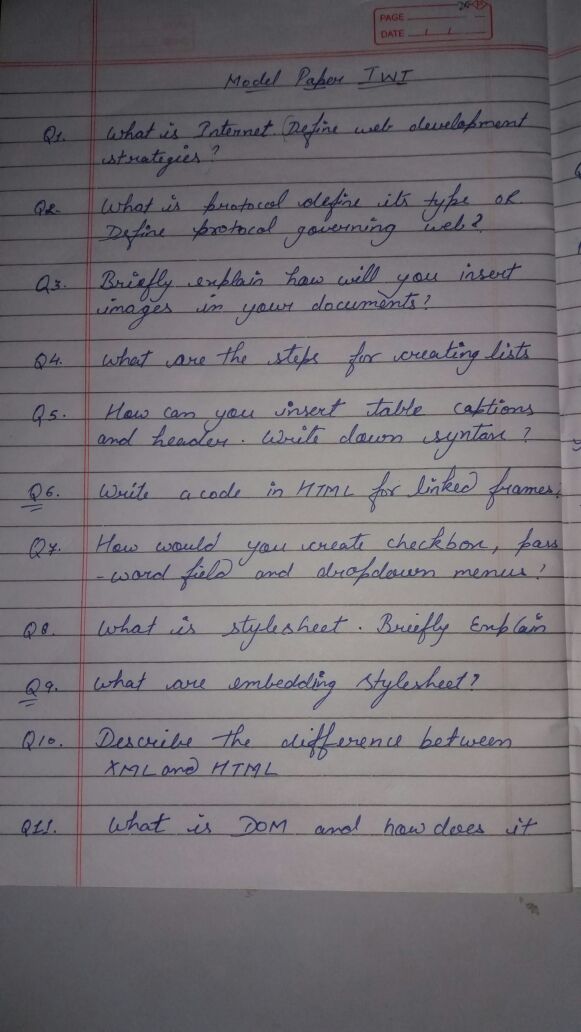 PAGE
DATE / /
Model Paper IWT
Q1. What is Internet. Define web development
strategies?
Q2. What is protocol define its type OR
Define protocol governing web?
Q3. Briefly explain how will you insert
images in your documents?
Q4. What are the steps for creating lists
Q5. How can you insert table captions
and header. Write down syntax?
Q6. Write a code in HTML for linked frames.
Q7. How would you create checkbox, pass
-word field and dropdown menus?
Q8. What is stylesheet. Briefly Explain
Q9. What are embedding stylesheet?
Q10. Describe the difference between
XML and HTML
Q11. What is DOM and how does it